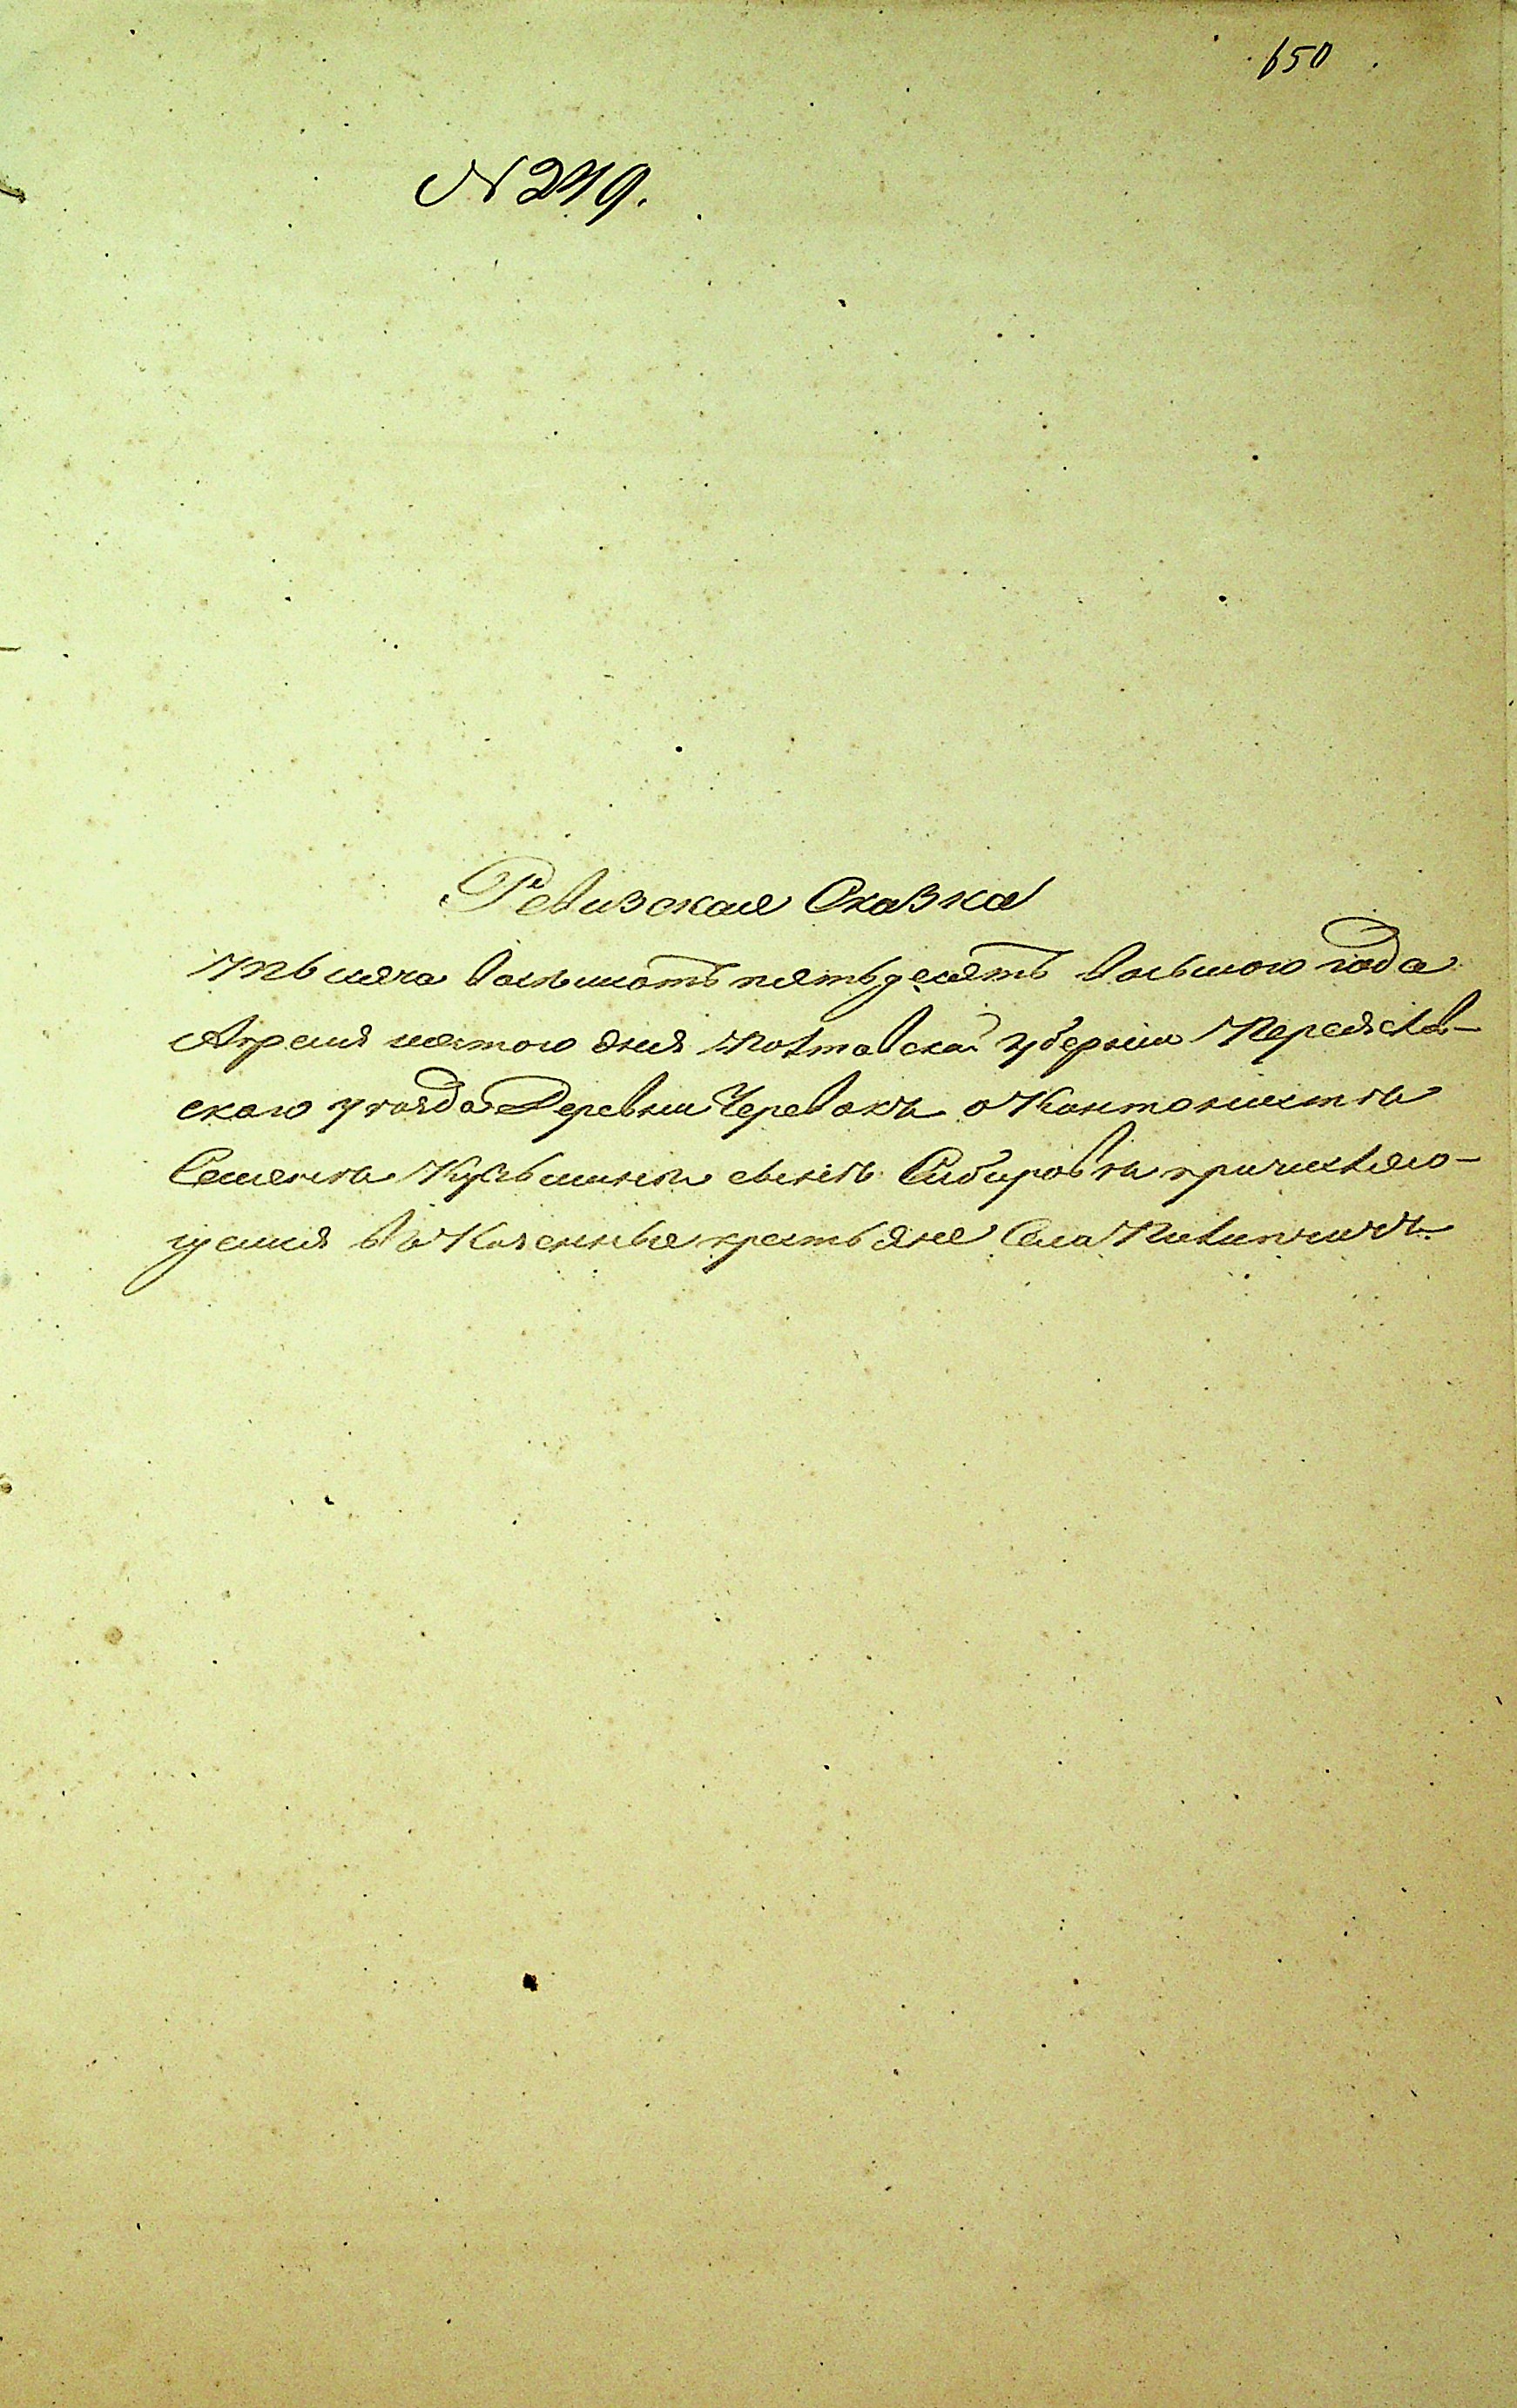 650
№ 249.
Ревизская Сказка
тысяча восемьсотъ пятьдесятъ восьмого года
Апреля шестого дня Полтавской губернии Переяслав-
ского уѣзда Деревни Черевокъ о Кантонистѣ
Семенѣ Кузьминѣ сынѣ Сибировѣ причисляю-
щемся въ Казенные крестьяне Села